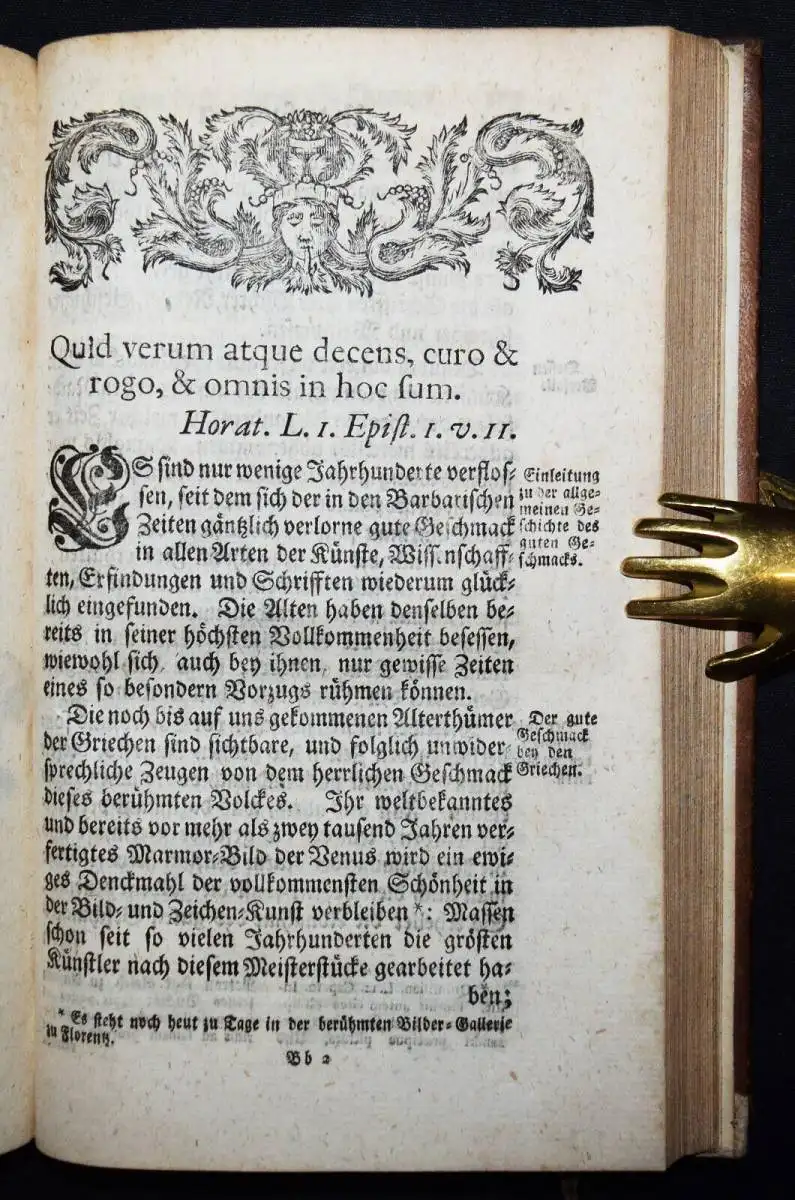 Quid verum atque decens, curo &
rogo, & omnis in hoc ſum.
Horat. L. 1. Epiſt. 1. v. 11.
ES ſind nur wenige Jahrhunderte verfloſ⸗
ſen, ſeit dem ſich der in den Barbariſchen
Zeiten gäntzlich verlorne gute Geſchmack
in allen Arten der Künſte, Wiſſenſchaff⸗
ten, Erfindungen und Schrifften wiederum glück⸗
lich eingefunden. Die Alten haben denſelben be⸗
reits in ſeiner höchſten Vollkommenheit beſeſſen,
wiewohl ſich auch bey ihnen, nur gewiſſe Zeiten
eines ſo beſondern Vorzugs rühmen können.
Einleitung
zu der allge⸗
meinen Ge⸗
ſchichte des
guten Ge⸗
ſchmacks.
Die noch bis auf uns gekommenen Alterthümer
der Griechen ſind ſichtbare, und folglich unwider⸗
ſprechliche Zeugen von dem herrlichen Geſchmack
dieſes berühmten Volckes. Ihr weltbekanntes
und bereits vor mehr als zwey tauſend Jahren ver⸗
fertigtes Marmor⸗Bild der Venus wird ein ewi⸗
ges Denckmahl der vollkommenſten Schönheit in
der Bild⸗ und Zeichen⸗Kunſt verbleiben *: Maſſen
ſchon ſeit ſo vielen Jahrhunderten die gröſten
Künſtler nach dieſem Meiſterſtücke gearbeitet ha⸗
ben;
Der gute
Geſchmack
bey den
Griechen.
* Es ſteht noch heut zu Tage in der berühmten Bilder⸗Gallerie
zu Florentz.
Bb 2